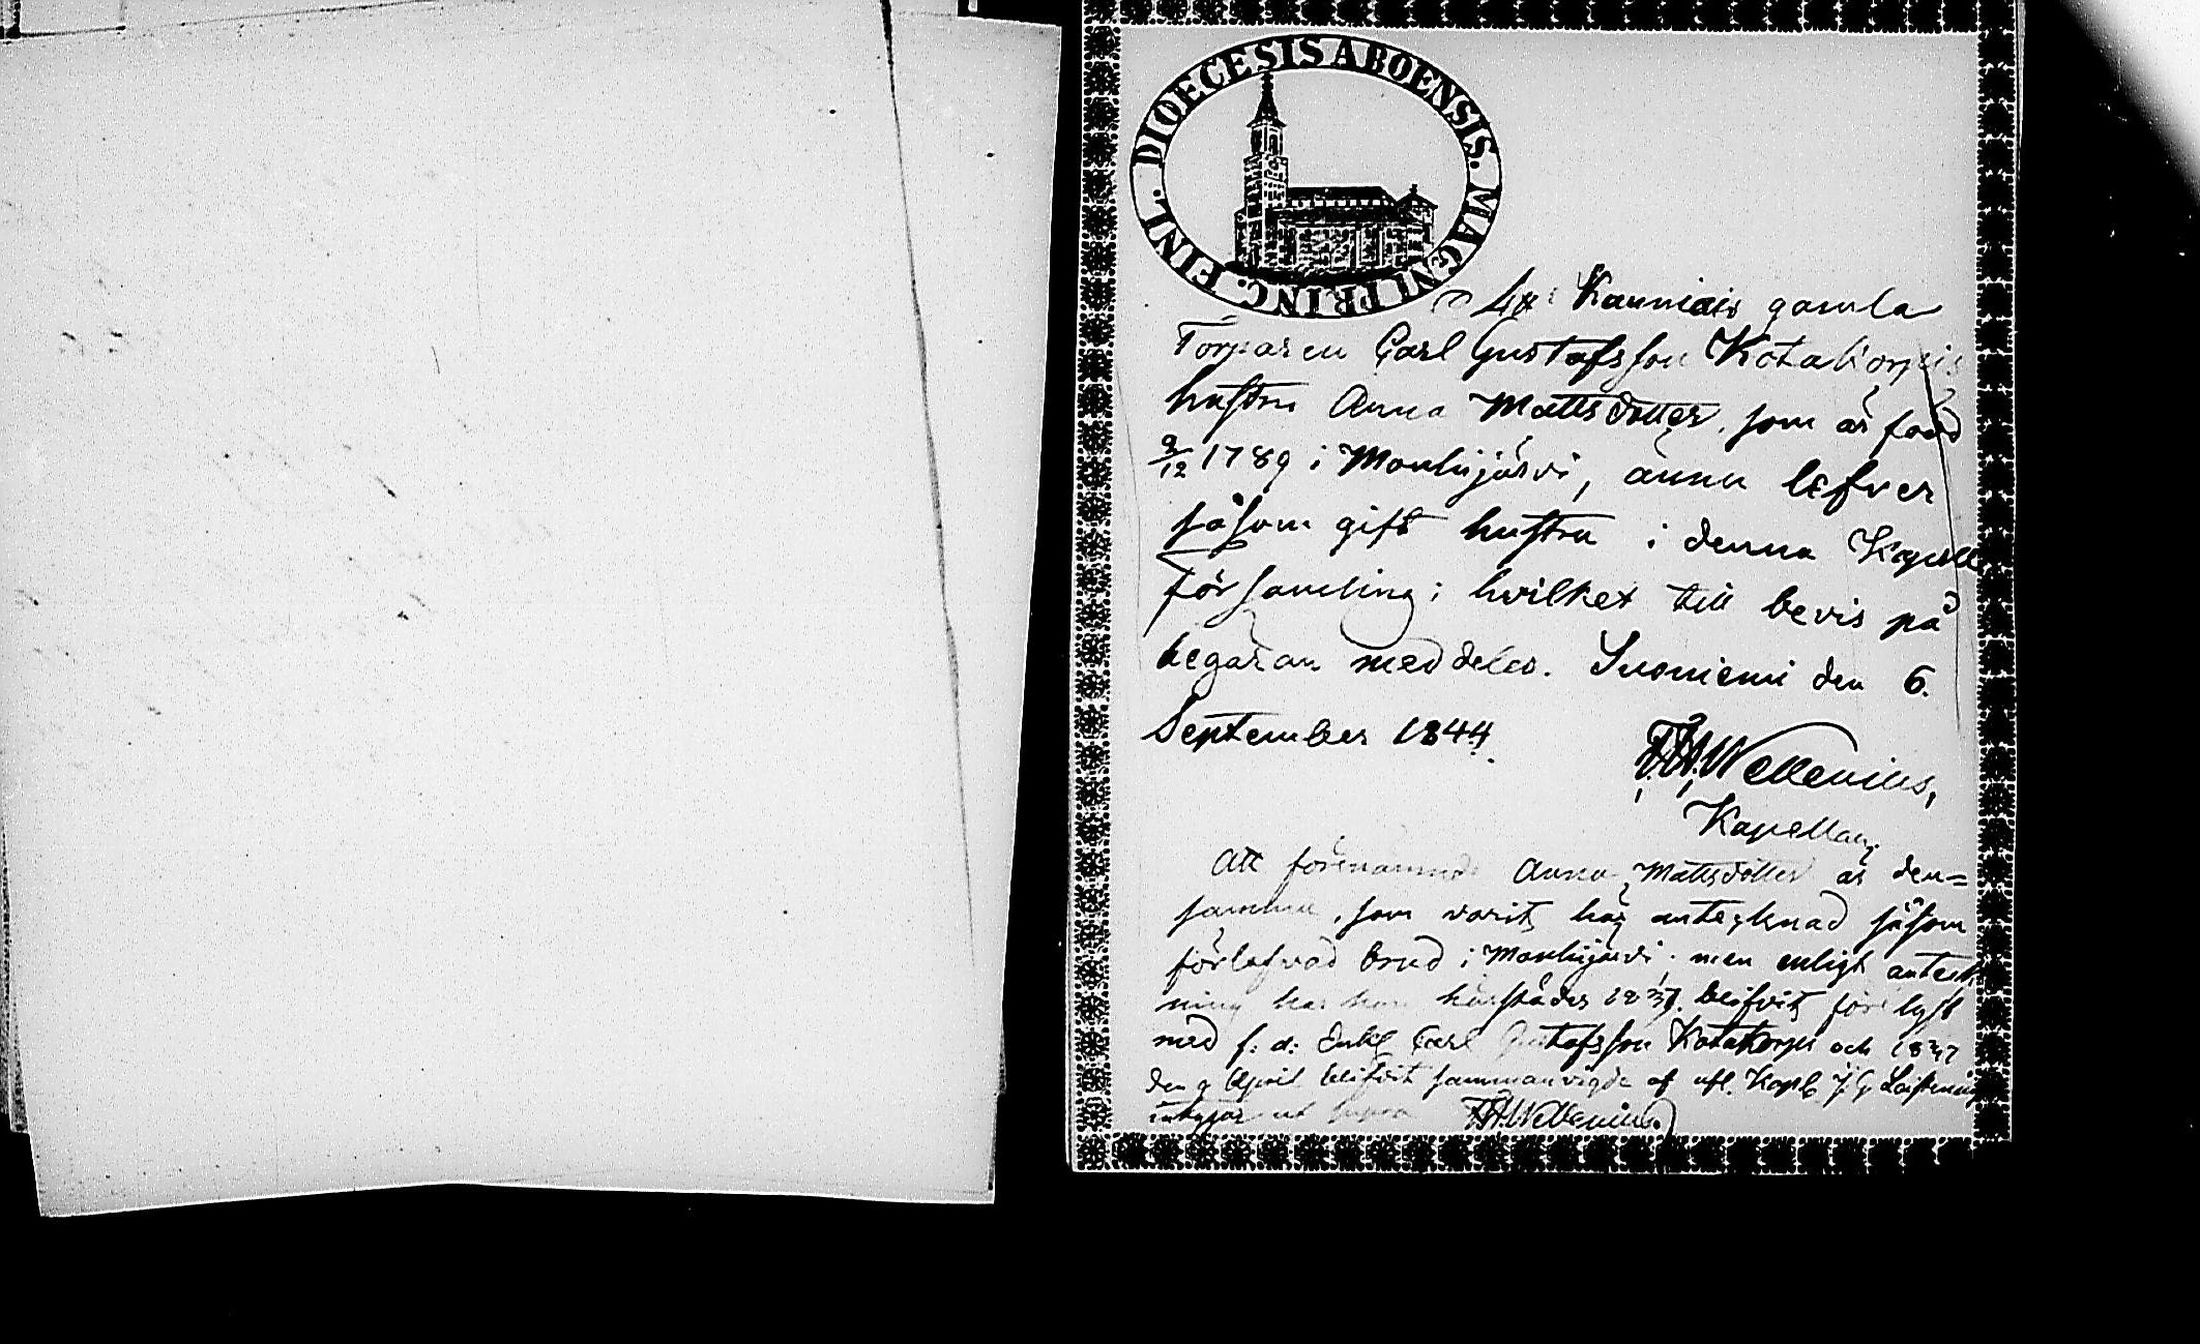 DIOECESIS ABOENSIS. MAGNI PRINC. FINL.
Kauniais gamla
Torparen Carl Gustafsson Kotakorpis
hustru Anna Mattsdotter, som är född
9/12 1789 i Mouhijärvi, ännu lefver
såsom gift hustru i denna Kapell
församling; hvilket till bevis på
begäran meddeles. Suoniemi den 6.
September 1844.
Wellenius,
Kapellan.
Att förenämnde Anna Mattsdotter är den=
samma, som varit här antecknad såsom
förlofvad brud i Mouhijärvi; men enligt anteck
ning har hon härstädes blifvit lyst
med f: d: Enkl Carl Gustafsson Kotakorpi och 1837
den 9 April blifvit sammanvigde af
intygar ut supra Wellenius.